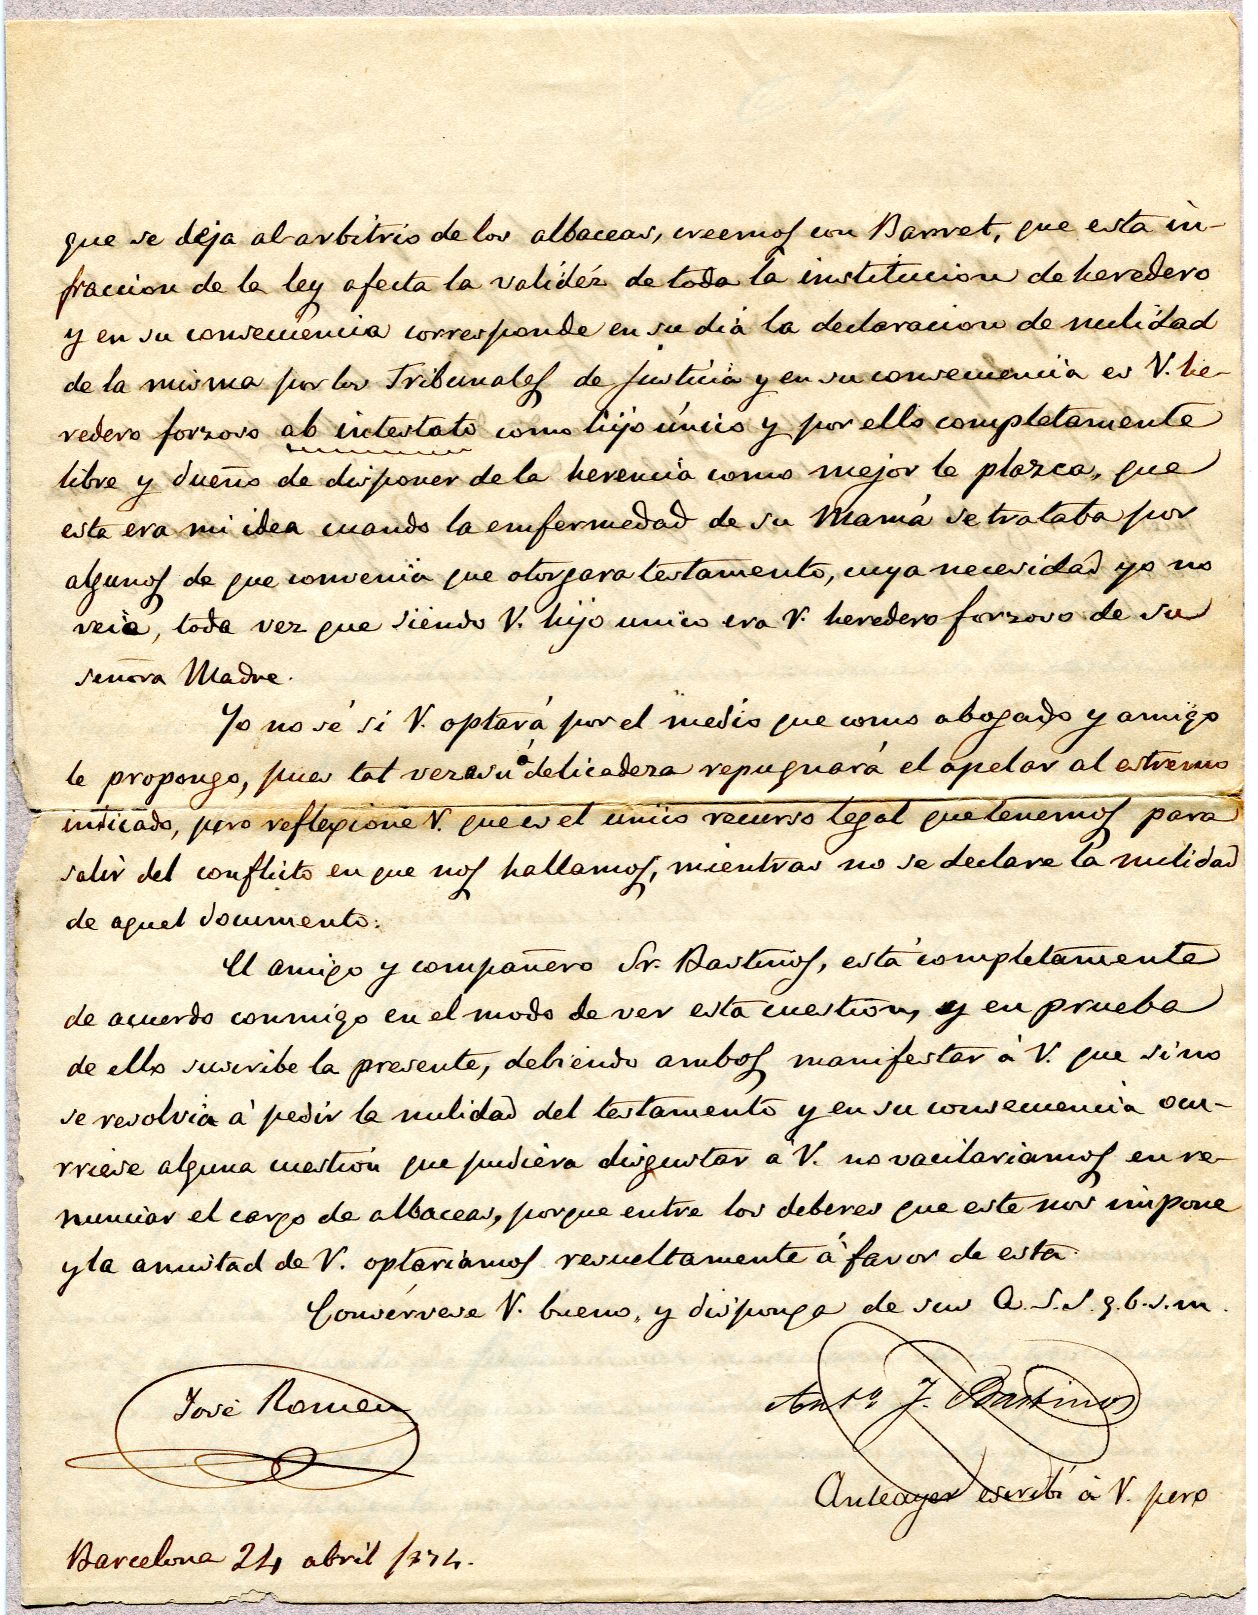 que se deja al arbitrio de los albaceas, creemos con Barret, que esta in-
fraccion de la ley afecta la validéz de toda la institucion de heredero
y en su consecuencia corresponde en su dia la declaracion de nulidad
de la misma por los Tribunales de justicia y en su consecuencia es V. he-
redero forzoso ab intestato como hijo único y por ello completamente
libre y dueño de disponer de la herencia como mejor le plazca, que
esta era mi idea cuando la emfermedad de su Mamá se trataba por
algunos de que convenia que otorgara testamento, cuya necesidad yo no
veia, toda vez que siendo V. hijo unico era V. heredero forzoso de su
señora Madre.
Yo no sé si V. optará por el medio que como abogado y amigo
le propongo, pues tal vez a su delicadeza repugnará el apelar al estremo
indicado, pero reflexione V. que es el unico recurso legal que tenemos para
salir del conflicto en que nos hallamos, mientras no se declare la nulidad
de aquel documento.
El amigo y compañero Sr. Bastinos, está completamente
de acuerdo conmigo en el modo de ver esta cuestion, y en prueba
de ello suscribe la presente, debiendo ambos manifestar á V. que si no
se resolvia á pedir la nulidad del testamento y en su consecuencia ocu-
rriese alguna cuestión que pudiera disgustar á V. no vacilariamos en re-
nunciar el cargo de albaceas, porque entre los deberes que este nos impone
y la amistad de V. optariamos resueltamente á favor de esta.
Consérvese V. bueno, y disponga de sus A. S. S. q. b. s. m.
José Romeu
Antº J. Bastinos
Anteayer escribí á V. pero
Barcelona 24 abril /874.